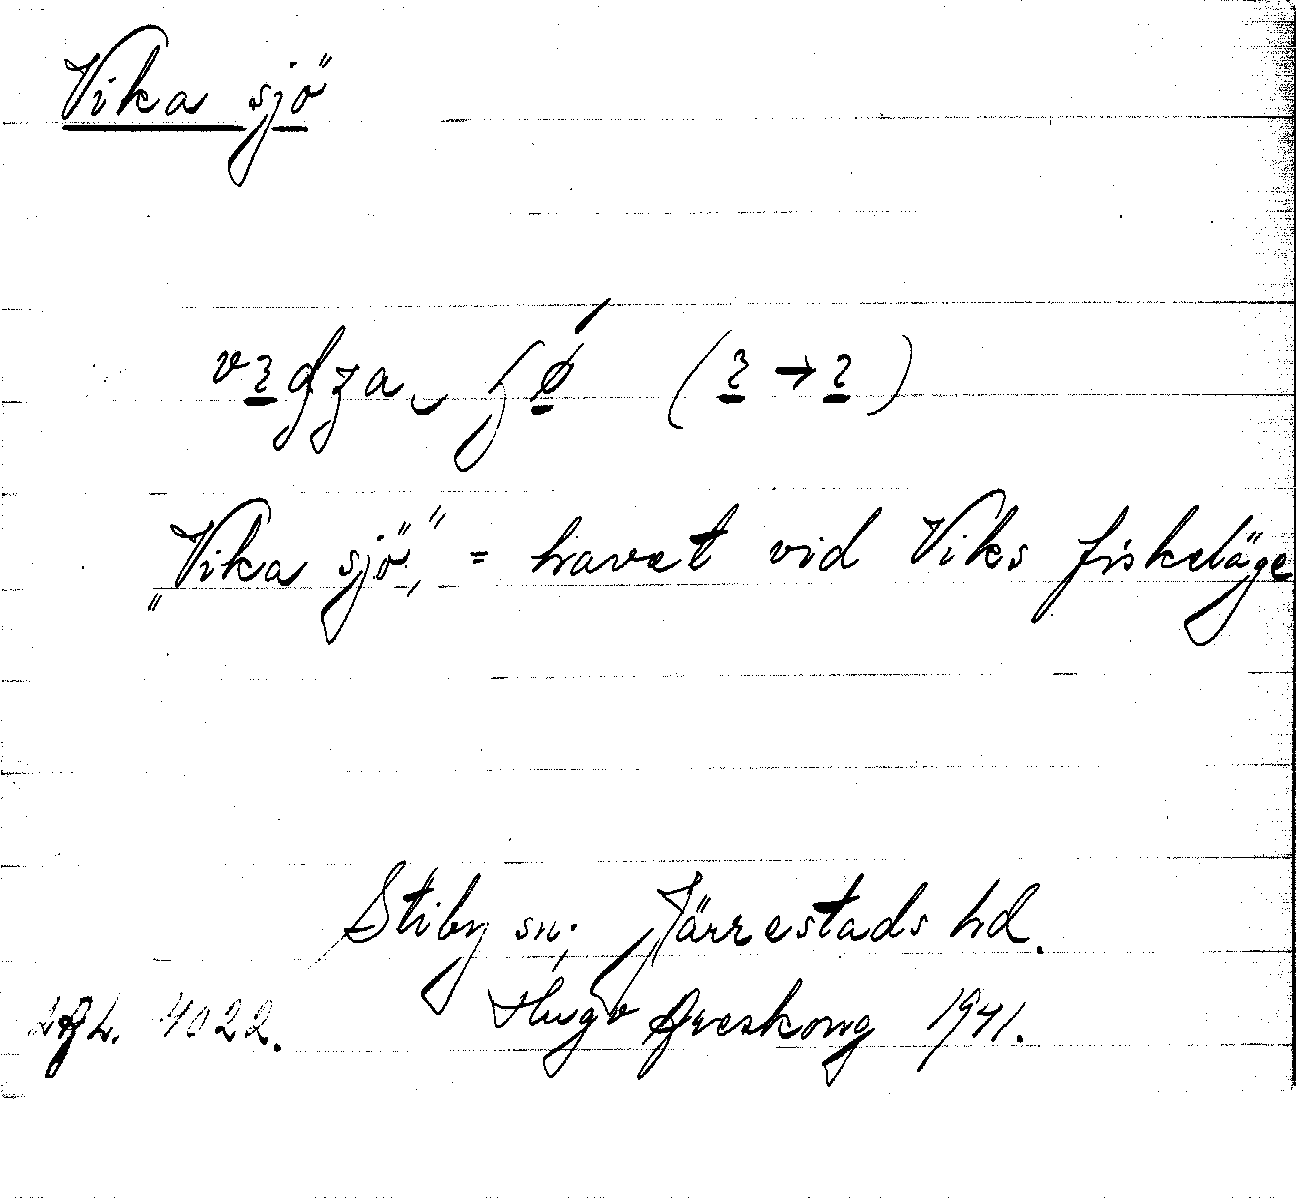 Vika sjö
"Vika sjö", = havet vid Viks fiskeläge
Stiby sn; Järrestads hd.
4022. Hugo Areskoug 1941.